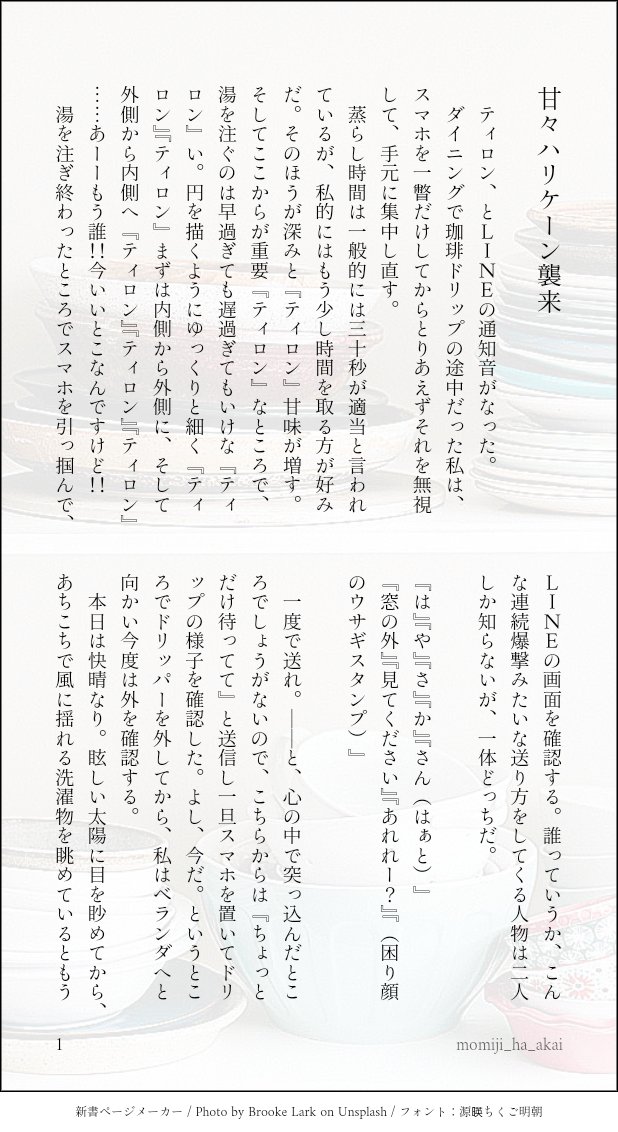 甘々ハリケーン襲来
ティロン、とＬＩＮＥの通知音がなった。
ダイニングで珈琲ドリップの途中だった私は、
スマホを一瞥だけしてからとりあえずそれを無視
して、手元に集中し直す。
蒸らし時間は一般的には三十秒が適当と言われ
ているが、私的にはもう少し時間を取る方が好み
だ。そのほうが深みと『ティロン』甘味が増す。
そしてここからが重要『ティロン』なところで、
湯を注ぐのは早過ぎても遅過ぎてもいけな『ティ
ロン』い。円を描くようにゆっくりと細く『ティ
ロン』『ティロン』まずは内側から外側に、そして
外側から内側へ『ティロン』『ティロン』『ティロン』
……あーーもう誰!!今いいとこなんですけど!!
湯を注ぎ終わったところでスマホを引っ掴んで、
ＬＩＮＥの画面を確認する。誰っていうか、こん
な連続爆撃みたいな送り方をしてくる人物は二人
しか知らないが、一体どっちだ。
『は』『や』『さ』『か』『さん（はぁと）』
『窓の外』『見てください』『あれれー？』『（困り顔
のウサギスタンプ）』
一度で送れ。――と、心の中で突っ込んだとこ
ろでしょうがないので、こちらからは『ちょっと
だけ待ってて』と送信し一旦スマホを置いてドリ
ップの様子を確認した。よし、今だ。というとこ
ろでドリッパーを外してから、私はベランダへと
向かい今度は外を確認する。
本日は快晴なり。眩しい太陽に目を眇めてから、
あちこちで風に揺れる洗濯物を眺めているともう
1
momiji_ha_akai
新書ページメーカー / Photo by Brooke Lark on Unsplash / フォント：源暎ちくご明朝